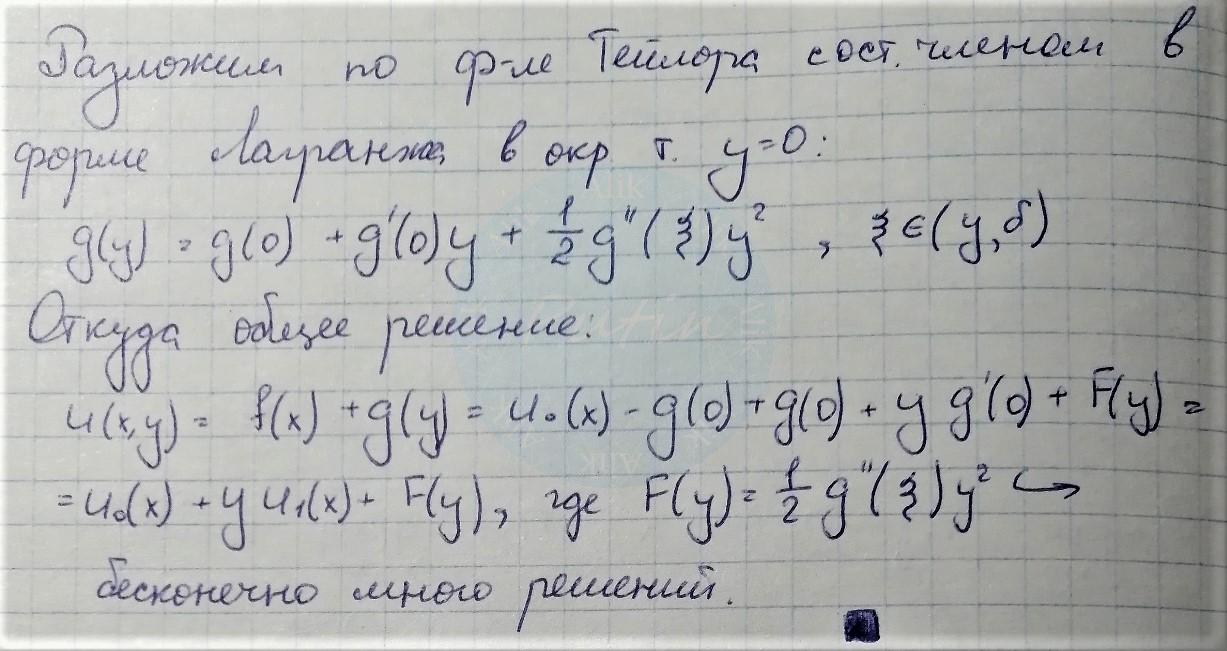 Разложим по ф-ле Тейлора с ост. членом в
форме Лагранжа в окр. т. y=0:
g(y) = g(0) + g'(0)y + 1/2 g''(ξ)y², ξ∈(y,δ)
Откуда общее решение:
u(x,y) = f(x) + g(y) = u₀(x) - g(0) + g(0) + y g'(0) + F(y) =
= u₀(x) + y u₁(x) + F(y), где F(y) = 1/2 g''(ξ)y² ↪
бесконечно много решений.